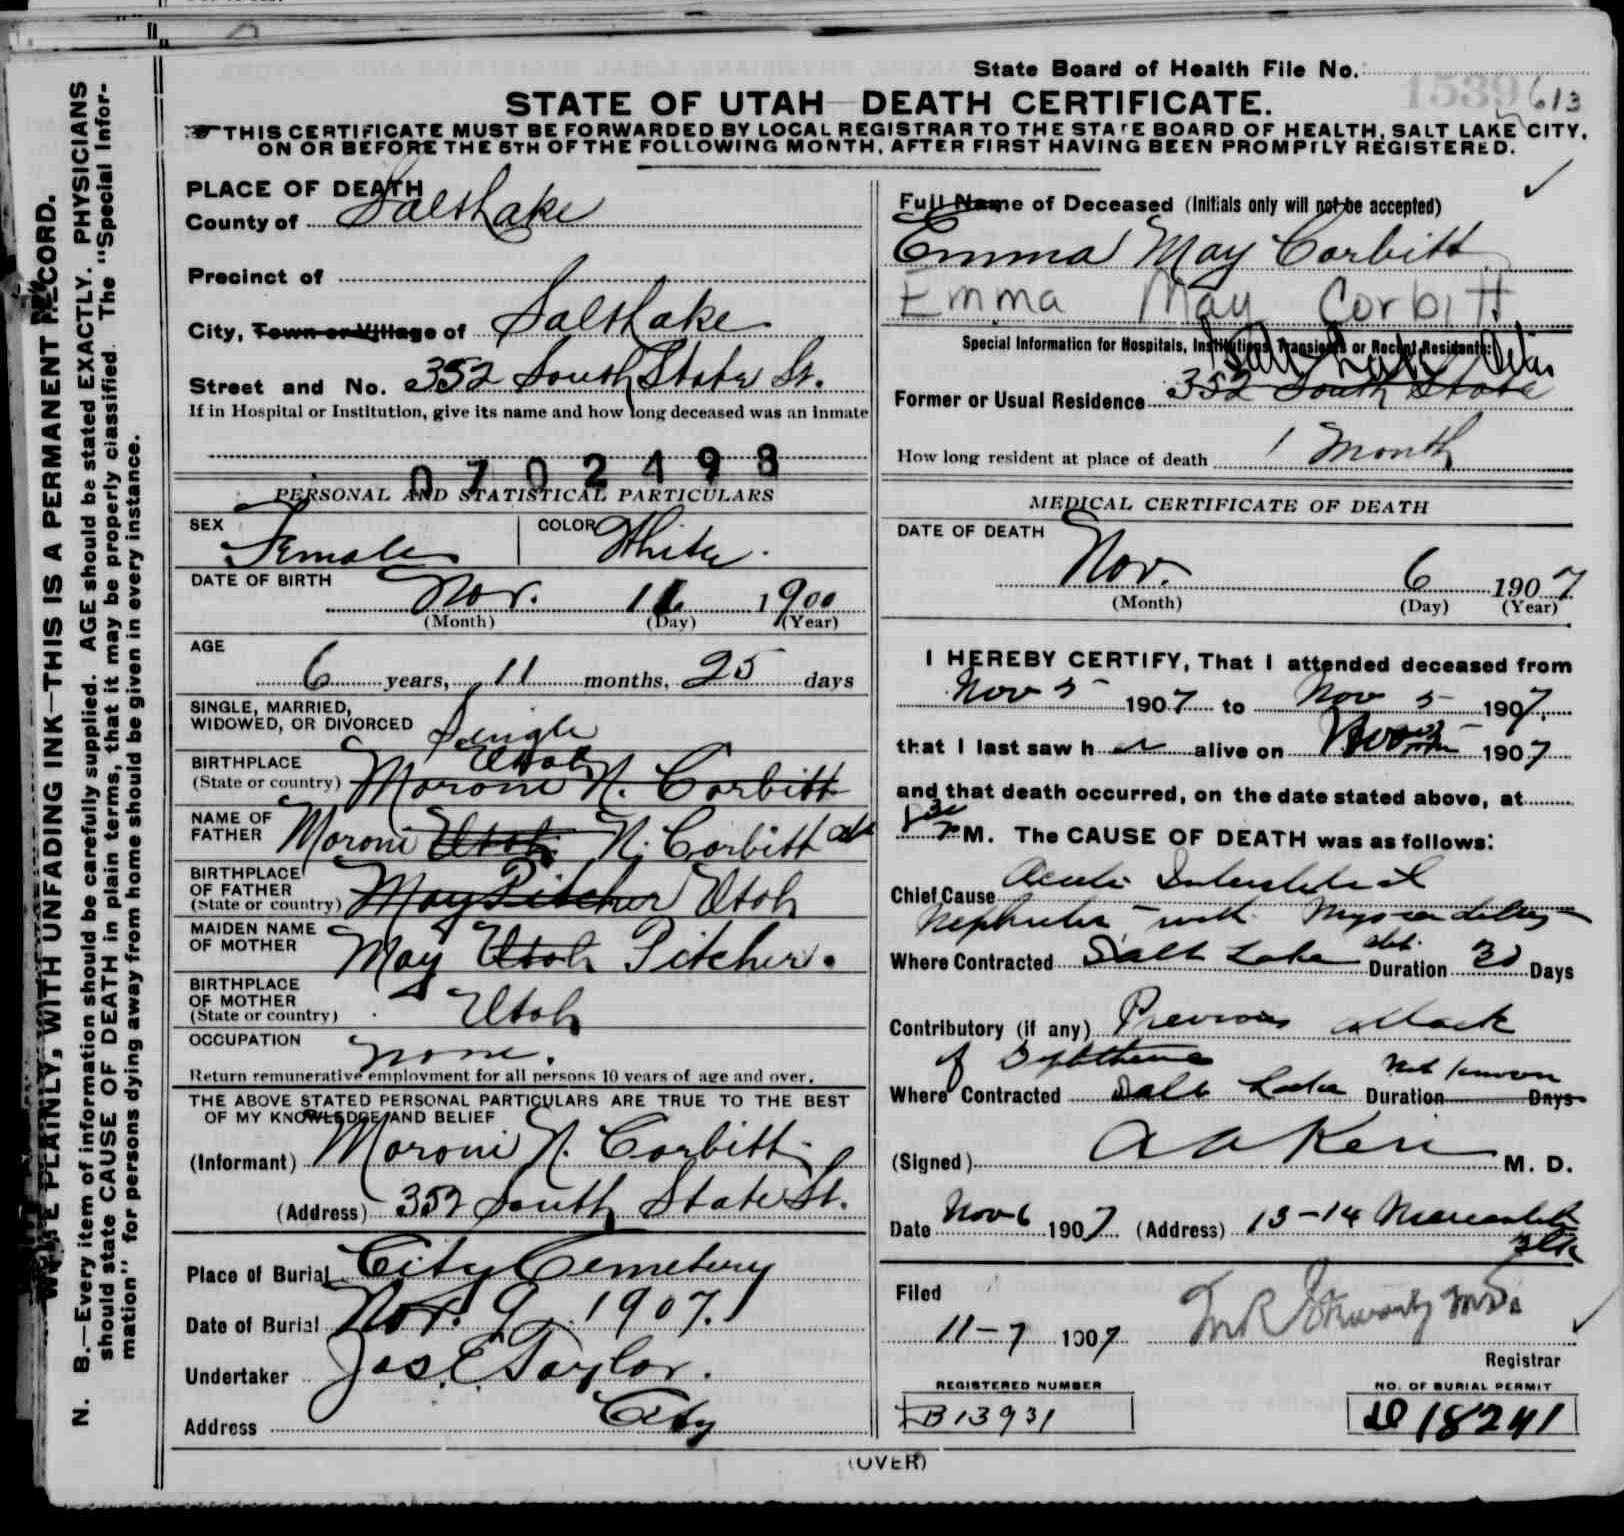 State Board of Health File No. 1539 613
STATE OF UTAH—DEATH CERTIFICATE.
THIS CERTIFICATE MUST BE FORWARDED BY LOCAL REGISTRAR TO THE STATE BOARD OF HEALTH, SALT LAKE CITY,
ON OR BEFORE THE 5TH OF THE FOLLOWING MONTH, AFTER FIRST HAVING BEEN PROMPTLY REGISTERED.
WRITE PLAINLY, WITH UNFADING INK—THIS IS A PERMANENT RECORD.
N. B.—Every item of information should be carefully supplied. AGE should be stated EXACTLY. PHYSICIANS
should state CAUSE OF DEATH in plain terms, that it may be properly classified. The "Special Infor-
mation" for persons dying away from home should be given in every instance.
PLACE OF DEATH
County of Salt Lake
Precinct of
City, Town or Village of Salt Lake
Street and No. 352 South State St.
If in Hospital or Institution, give its name and how long deceased was an inmate
0702498
PERSONAL AND STATISTICAL PARTICULARS
SEX Female COLOR White.
DATE OF BIRTH Nov. 11 1900
(Month) (Day) (Year)
AGE
6 years, 11 months, 25 days
SINGLE, MARRIED,
WIDOWED, OR DIVORCED Single
BIRTHPLACE Utah
(State or country) Moroni N. Corbitt
NAME OF
FATHER Moroni Utah N. Corbitt
BIRTHPLACE
OF FATHER
(State or country) May Pitcher Utah
MAIDEN NAME
OF MOTHER May Utah Pitcher.
BIRTHPLACE
OF MOTHER
(State or country) Utah
OCCUPATION none.
Return remunerative employment for all persons 10 years of age and over.
THE ABOVE STATED PERSONAL PARTICULARS ARE TRUE TO THE BEST
OF MY KNOWLEDGE AND BELIEF
(Informant) Moroni N. Corbitt
(Address) 352 South State St.
Place of Burial City Cemetery
Date of Burial Nov. 9 1907.
Undertaker Jos. E. Taylor.
Address City
Full Name of Deceased (Initials only will not be accepted)
Emma May Corbitt
Emma May Corbitt
Special Information for Hospitals, Institutions, Transients or Recent Residents:
Salt Lake City
Former or Usual Residence 352 South State
How long resident at place of death 1 Month
MEDICAL CERTIFICATE OF DEATH
DATE OF DEATH
Nov. 6 1907
(Month) (Day) (Year)
I HEREBY CERTIFY, That I attended deceased from
Nov 5 1907 to Nov 5 1907,
that I last saw h er alive on Nov 5 1907
and that death occurred, on the date stated above, at
M. The CAUSE OF DEATH was as follows:
Chief Cause Acute Interstitial
Nephritis with Myocarditis
Where Contracted Salt Lake abt. Duration 30 Days
Contributory (if any) Previous attack
of Diphtheria
Where Contracted Salt Lake Duration Not known Days
(Signed) M. D.
Date Nov 6 1907 (Address) 13-14 Mercantile
Blk
Filed
11-7 1907
Registrar
REGISTERED NUMBER
B13931
NO. OF BURIAL PERMIT
D 18241
(OVER)